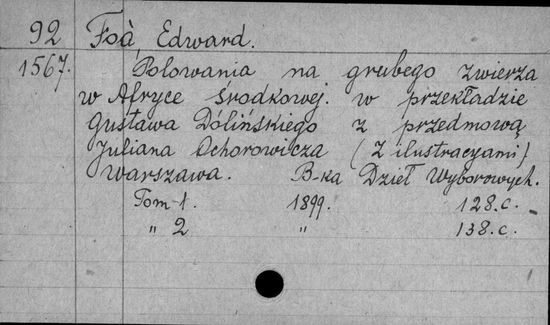 92 Foà Edward.
1567. Polowania na grubego zwierza
w Afryce środkowej. w przekładzie
Gustawa Dólińskiego z przedmową
Juliana Ochorowicza (z ilustracyami)
Warszawa. B-ka Dzieł Wyborowych.
Tom 1. 1899. 128.c.
„ 2 „ 138.c.